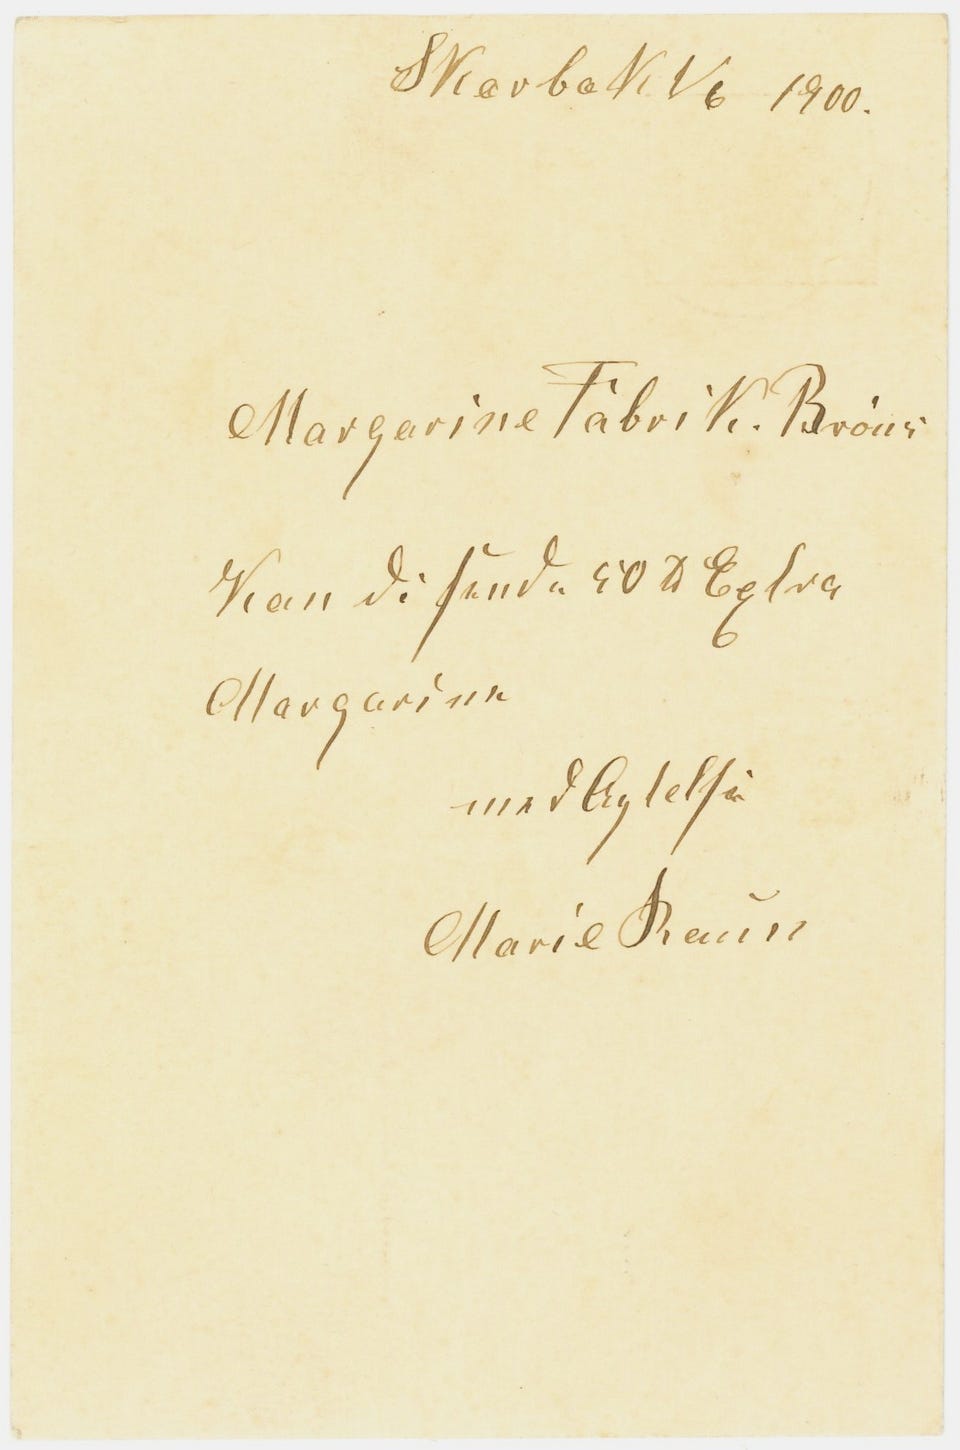 Skerbek 1/6 1900.
Margarine Fabrik. Bröns
Kan di sende 50 ℔ Extra
Margarine
med Agtelse
Marie Raun